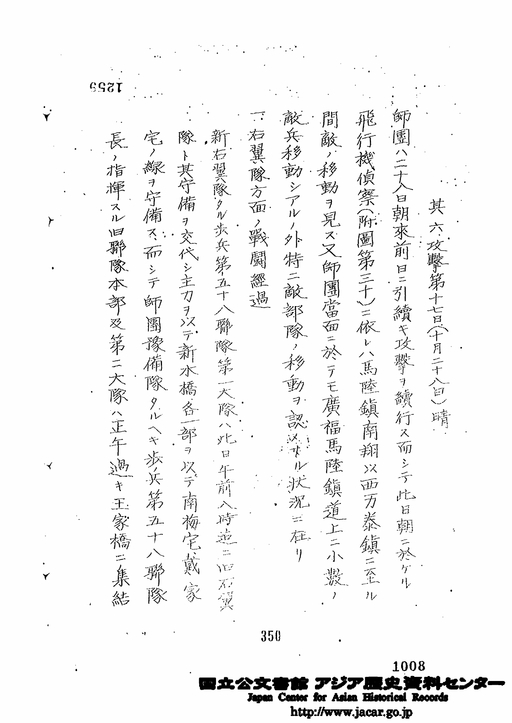 其六、攻擊第十七日(十月二十八日) 晴
師團ハ二十八日朝來前日ニ引續キ攻擊ヲ續行ス而シテ此日朝ニ於ケル
飛行機偵察(附圖第三十)ニ依レハ馬陸鎭南翔以西方泰鎭ニ至ル
間敵ノ移動ヲ見ス又師團當面ニ於テモ廣福馬陸鎭道上ニ小數ノ
敵兵移動シアルノ外特ニ敵部隊ノ移動ヲ認メサル狀況ニ在リ
一、右翼隊方面ノ戰鬪經過
新右翼隊タル步兵第五十八聯隊第一大隊ハ此日午前八時迄ニ旧右翼
隊ト其守備ヲ交代シ主力ヲ以テ新木橋各一部ヲ以テ南梅宅戴家
宅ノ線ヲ守備ス而シテ師團豫備隊タルヘキ步兵第五十八聯隊
長ノ指揮スル旧聯隊本部及第二大隊ハ正午過キ王家橋ニ集結
1259
350
1008
国立公文書館 アジア歴史資料センター
Japan Center for Asian Historical Records
http://www.jacar.go.jp